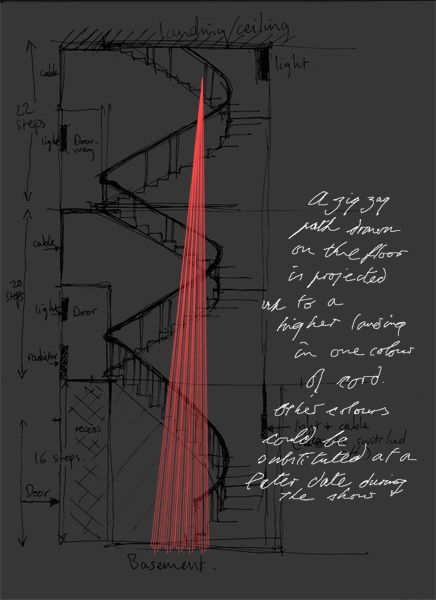 landing/ceiling
cable
light.
22
steps
light
Door-
way
cable
20
steps
light
Door
radiator
recess
16 steps.
Door
Basement.
light + cable
switched
A zig zag
path drawn
on the floor
is projected
up to a
higher landing
in one colour
of cord.
Other colours
could be
substituted at a
later date during
the show